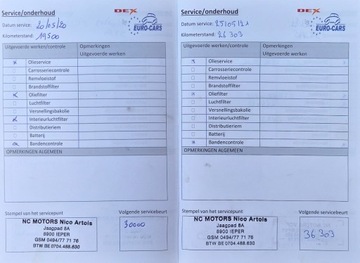 Service/onderhoud
DEX
EURO-CARS
Datum service: 20/05/20
Kilometerstand: 19500
Uitgevoerde werken/controle
Opmerkingen
Uitgevoerde werken
Olieservice
Carrosseriecontrole
Remvloeistof
Brandstoffilter
Oliefilter
Luchtfilter
Versnellingsbakolie
Interieurluchtfilter
Distributieriem
Batterij
Bandencontrole
OPMERKINGEN ALGEMEEN
Stempel van het servicepunt
Volgende servicebeurt
NC MOTORS Nico Artois
Jaagpad 8A
8900 IEPER
GSM 0494/77 71 76
BTW BE 0704 488.630
30000
Service/onderhoud
DEX
EURO-CARS
Datum service: 25/05/21
Kilometerstand: 26303
Uitgevoerde werken/controle
Opmerkingen
Uitgevoerde werken
Olieservice
Carrosseriecontrole
Remvloeistof
Brandstoffilter
Oliefilter
Luchtfilter
Versnellingsbakolie
Interieurluchtfilter
Distributieriem
Batterij
Bandencontrole
OPMERKINGEN ALGEMEEN
Stempel van het servicepunt
Volgende servicebeurt
NC MOTORS Nico Artois
Jaagpad 8A
8900 IEPER
GSM 0494/77 71 76
BTW BE 0704 488.630
36303